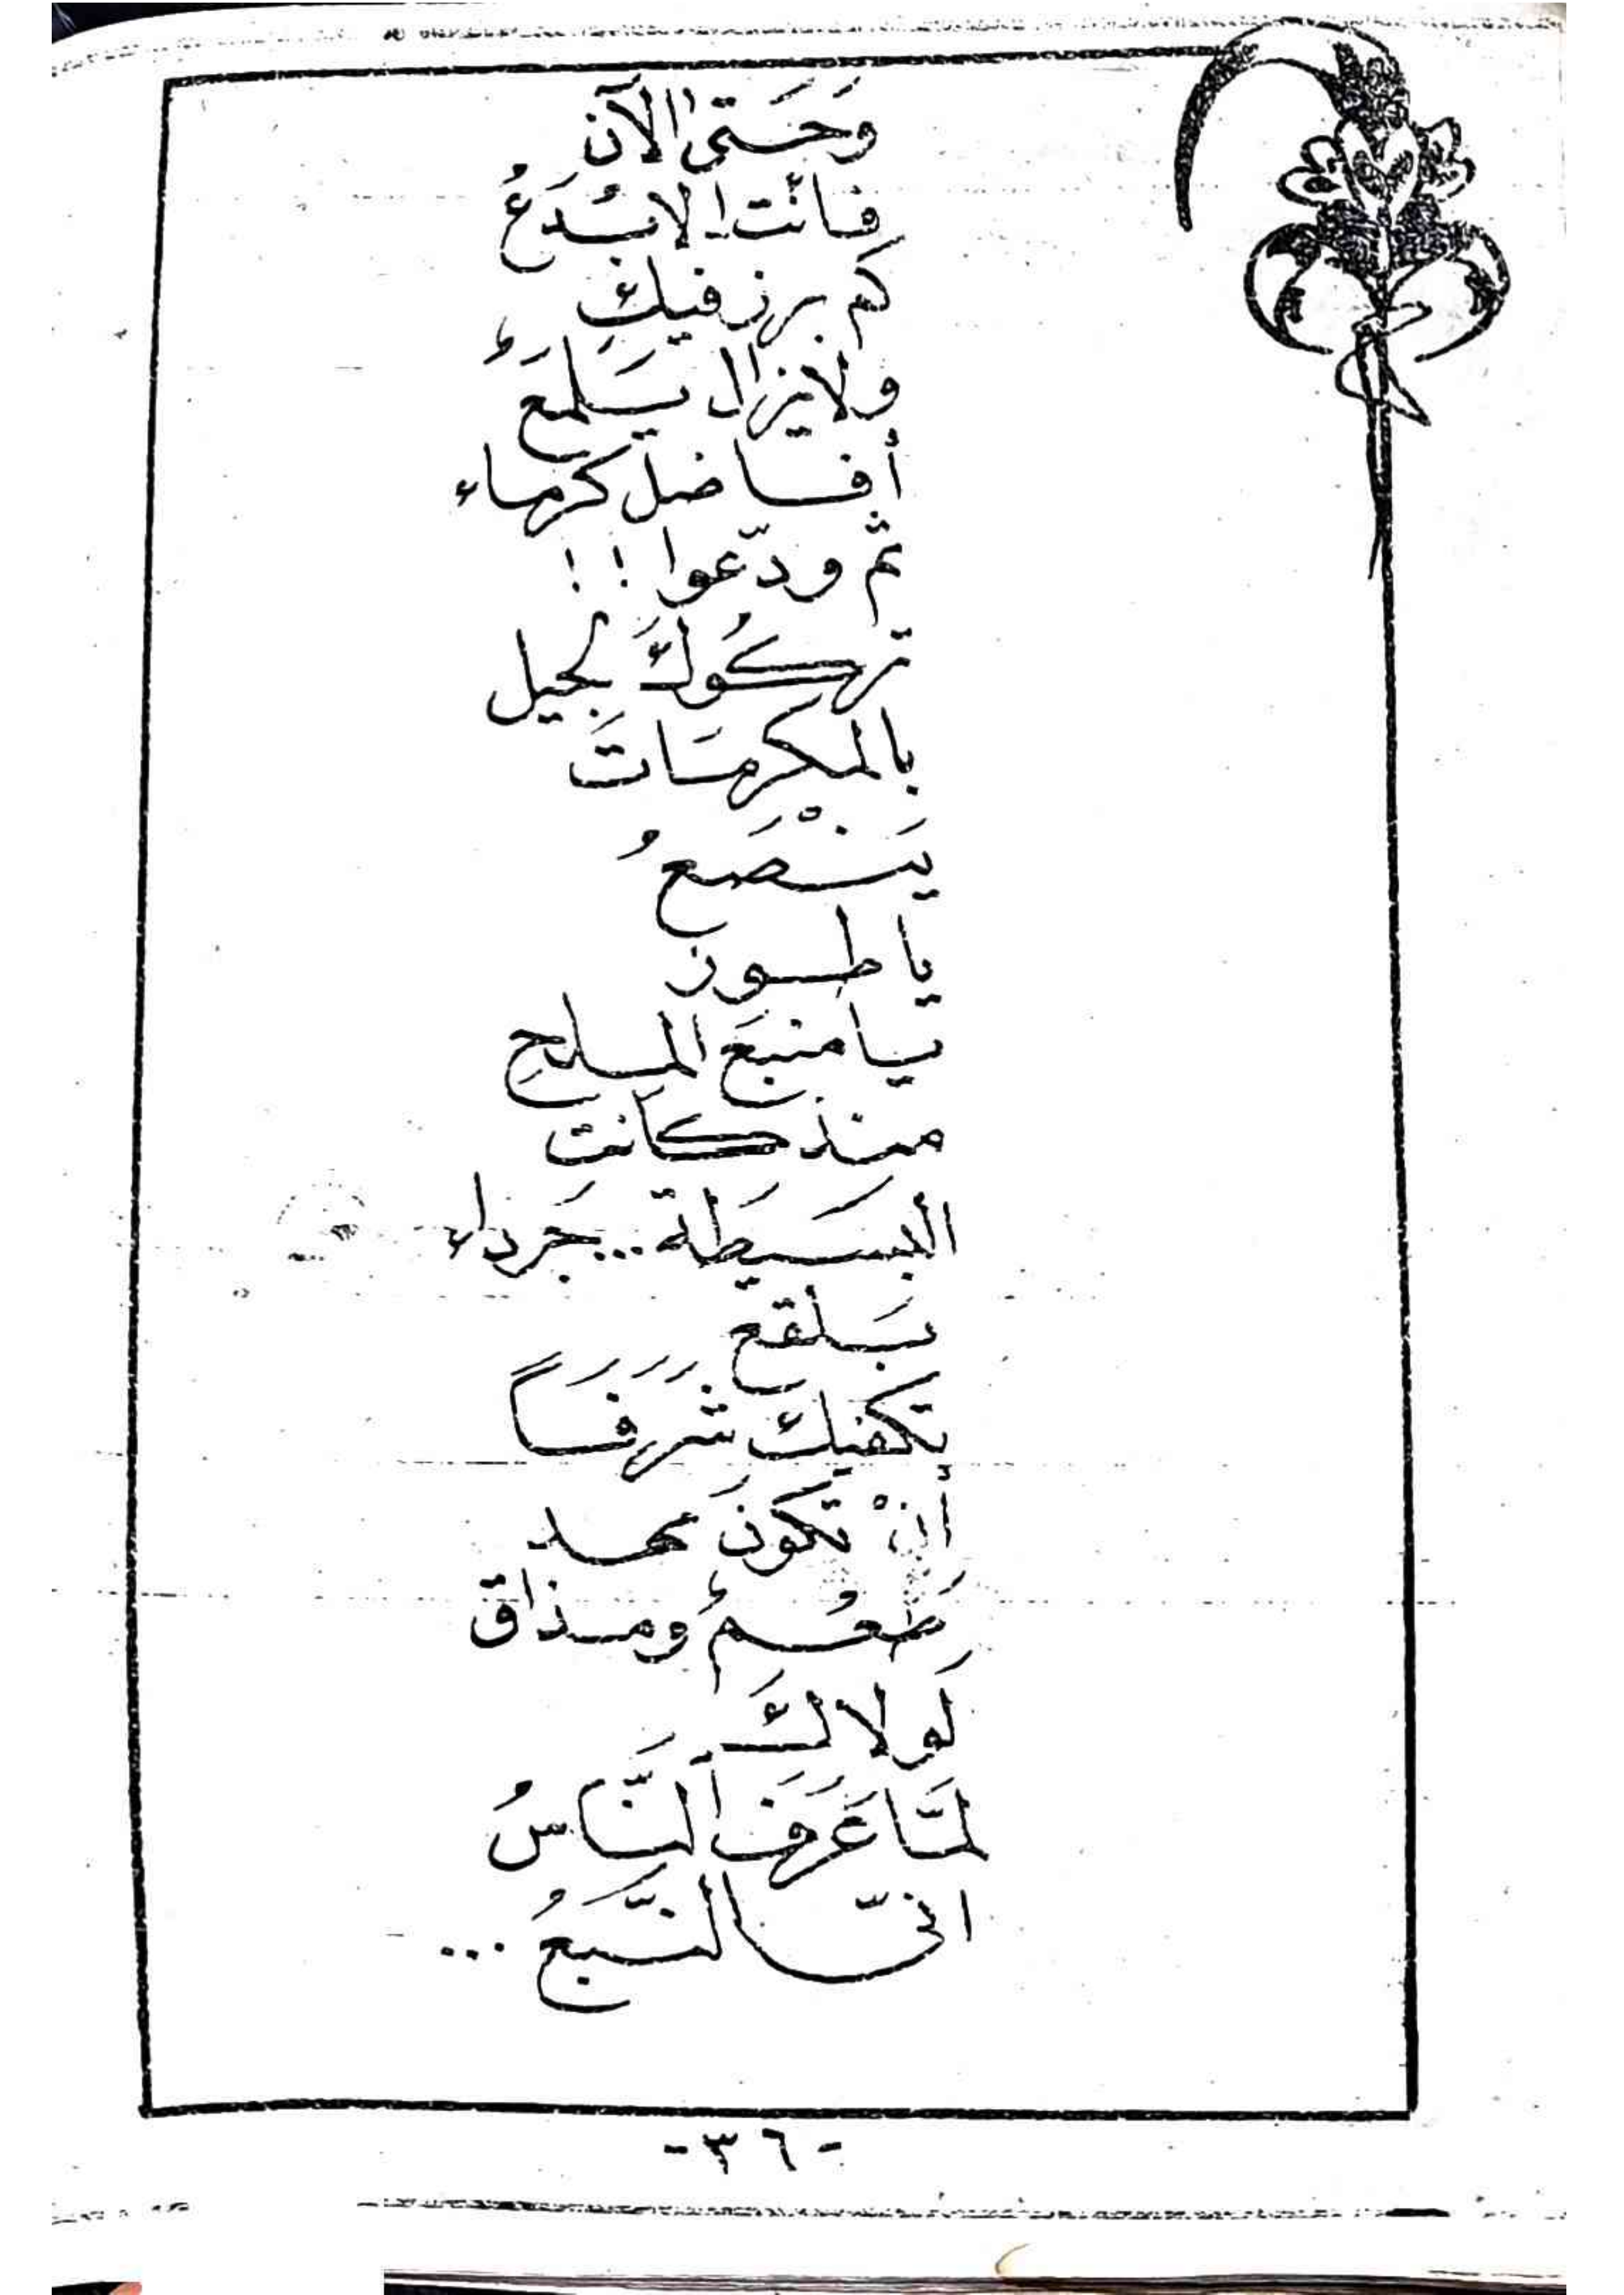 وَحَتى الآن
فانت الابْدَعُ
كم برز فيك
ولا يزال يَلمَعُ
أفاضل كرماء
ثم ودّعوا !!
تركوكَ لجيل
بالمكرمَات
يَنْصَعُ
يا طوز
يا منبعَ الملحِ
منذ كانت
البَسَيطَة... جَرداء
بَلقع
تكفيك شَرَفاً
أنْ تكونَ محمد
طَعُمُ ومذاق
لَولاكَ
لمَا عَرَفَ النَّاسُ
انىّ النَّبعُ ...
-٣٦-